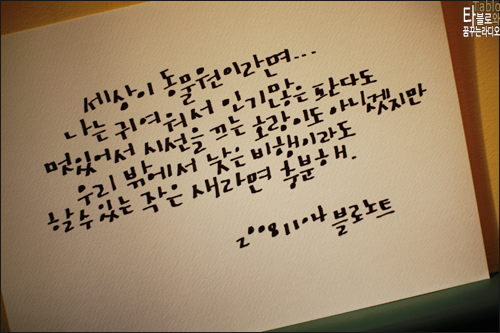 세상이 동물원이라면...
나는 귀여워서 인기많은 판다도
멋있어서 시선을 끄는 호랑이도 아니겠지만
우리 밖에서 낮은 비행이라도
할수있는 작은 새라면 충분해.
20081104 블로노트
Tablo
타블로와
꿈꾸는라디오